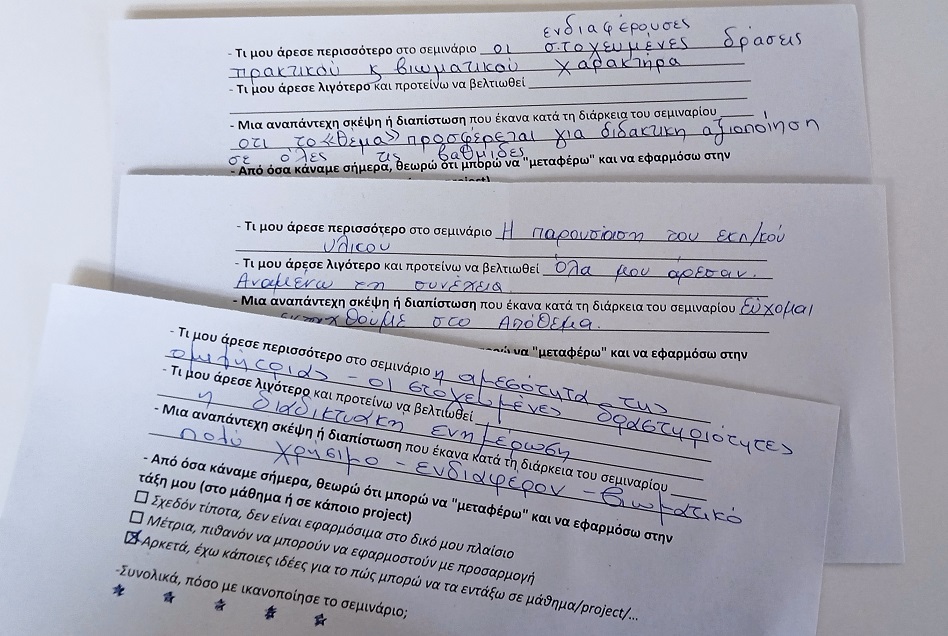 ενδιαφέρουσες
- Τι μου άρεσε περισσότερο στο σεμινάριο οι στοχευμένες δράσεις
πρακτικού & βιωματικού χαρακτήρα
- Τι μου άρεσε λιγότερο και προτείνω να βελτιωθεί
- Μια αναπάντεχη σκέψη ή διαπίστωση που έκανα κατά τη διάρκεια του σεμιναρίου
οτι το «θέμα» προσφέρεται για διδακτική αξιοποίηση
σε όλες τις βαθμίδες
- Από όσα κάναμε σήμερα, θεωρώ ότι μπορώ να "μεταφέρω" και να εφαρμόσω στην
- Τι μου άρεσε περισσότερο στο σεμινάριο Η παρουσίαση του εκπ/κού
υλικού
- Τι μου άρεσε λιγότερο και προτείνω να βελτιωθεί Όλα μου άρεσαν.
Αναμένω τη συνέχεια
- Μια αναπάντεχη σκέψη ή διαπίστωση που έκανα κατά τη διάρκεια του σεμιναρίου Εύχομαι
στο Απόθεμα.
να "μεταφέρω" και να εφαρμόσω στην
- Τι μου άρεσε περισσότερο στο σεμινάριο η αμεσότητα της
ομιλήτριας - οι στοχευμένες δραστηριότητες
- Τι μου άρεσε λιγότερο και προτείνω να βελτιωθεί
η διαδικτυακή ενημέρωση
- Μια αναπάντεχη σκέψη ή διαπίστωση που έκανα κατά τη διάρκεια του σεμιναρίου
πολύ χρήσιμο - ενδιαφέρον - βιωματικό
- Από όσα κάναμε σήμερα, θεωρώ ότι μπορώ να "μεταφέρω" και να εφαρμόσω στην
τάξη μου (στο μάθημα ή σε κάποιο project)
Σχεδόν τίποτα, δεν είναι εφαρμόσιμα στο δικό μου πλαίσιο
Μέτρια, πιθανόν να μπορούν να εφαρμοστούν με προσαρμογή
Αρκετά, έχω κάποιες ιδέες για το πώς μπορώ να τα εντάξω σε μάθημα/project/...
-Συνολικά, πόσο με ικανοποίησε το σεμινάριο;